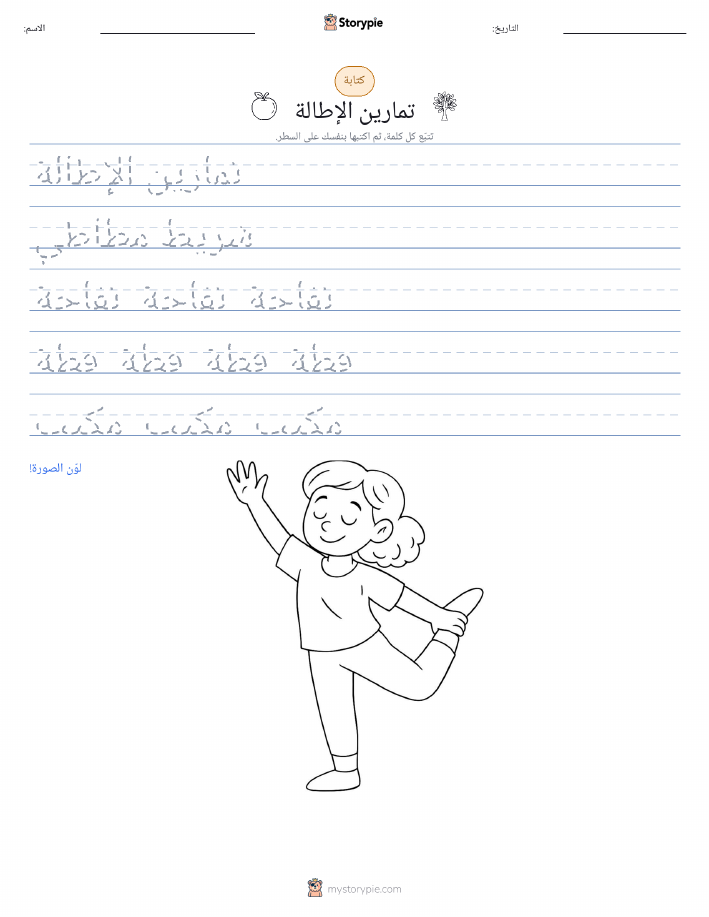 Storypie
الاسم:
التاريخ:
كتابة
تمارين الإطالة
تتبّع كل كلمة، ثم اكتبها بنفسك على السطر.
تمارين الإطالة
شريط مطاطي
تفاحة تفاحة تفاحة
قطة قطة قطة قطة
مكعب مكعب مكعب
لوّن الصورة!
mystorypie.com